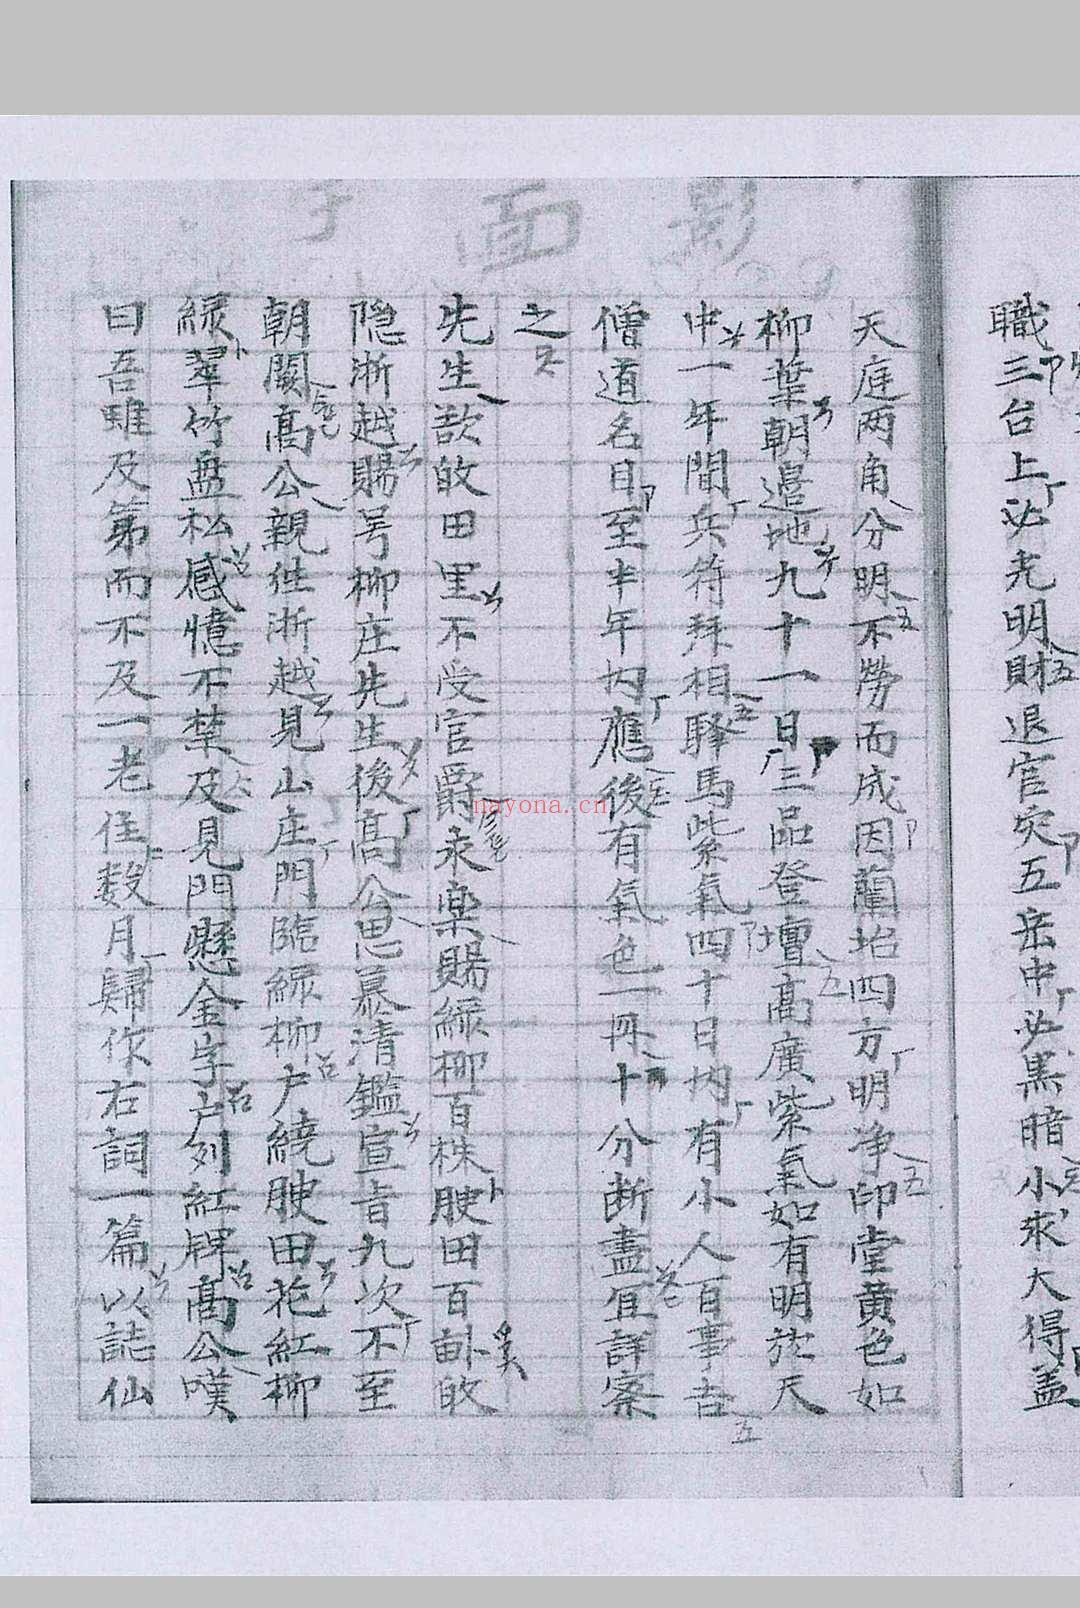 影面子
職三台上必光明財退官灾五岳中必黑暗小求大得盖
天庭两角分明不勞而成因蘭坮四方明净印堂黄色如
柳葉朝邉地九十一日三品登壇高廣紫氣如有明於天
中一年間兵符拜相驛馬紫氣四十日内有小人百事吉
僧道名目至半年内應後有氣色一冊十分断盡宜詳察
之
先生歆放田里不受官爵永業賜綠柳百株腴田百畝放
隐浙越賜号柳庄先生後高公思慕清鑑宣旨九次不至
朝闕高公親徃浙越見山庄門臨綠柳户繞腴田花紅柳
綠翠竹盘松感憶不禁及見門懸金字户列紅牌高公嘆
曰吾雖及第而不及一老住数月歸作右詞一篇以誌仙
nayona.cn